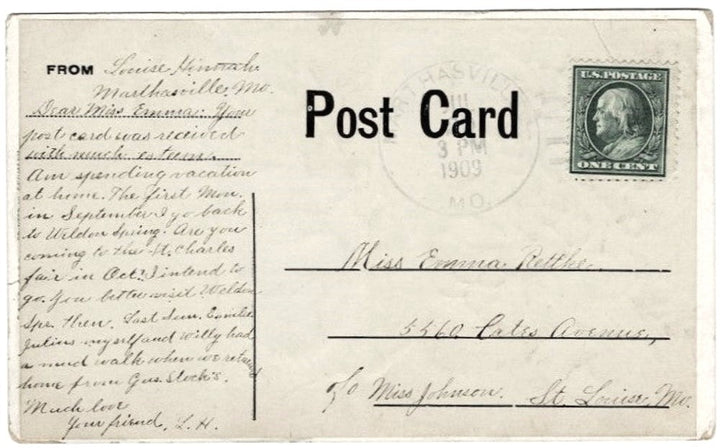 FROM Louise Hinnah
Marthasville, Mo.
Dear Miss Emma: Your
post card was received
with much esteem.
Am spending vacation
at home. The first Mon.
in September I go back
to Weldon Spring. Are you
coming to the St. Charles
fair in Oct.? I intend to
go. You better visit Weldon
Spr. then. Last Sun. Emilie
Julius myself and Willy had
a mud walk when we returned
home from Gus. Stock's.
Much love
Your friend, L.H.
Post Card
MARTHASVILLE
JUL
3 PM
1909
MO.
U.S. POSTAGE
ONE CENT
Miss Emma
5560 Cates Avenue,
c/o Miss Johnson. St. Louis, Mo.